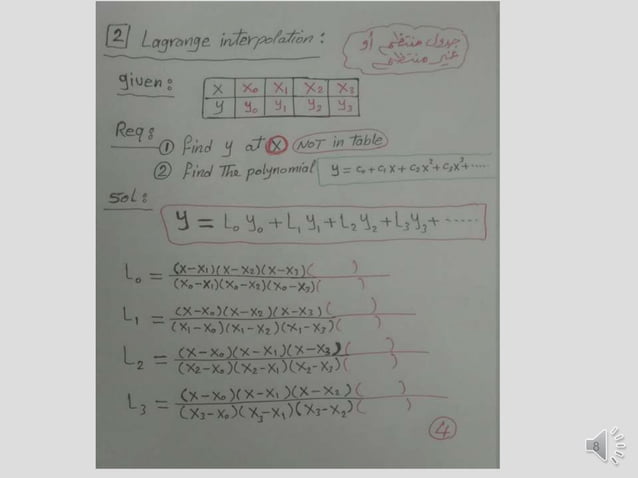 2 Lagrange interpolation :
جدول منتظم أو
غير منتظم
given :
x x₀ x₁ x₂ x₃
y y₀ y₁ y₂ y₃
Req :
① find y at x (NOT in table)
② find The polynomial y = c₀ + c₁x + c₂x² + c₃x³ + .....
Sol :
y = L₀y₀ + L₁y₁ + L₂y₂ + L₃y₃ + .....
L₀ = (x-x₁)(x-x₂)(x-x₃)( )
(x₀-x₁)(x₀-x₂)(x₀-x₃)( )
L₁ = (x-x₀)(x-x₂)(x-x₃)( )
(x₁-x₀)(x₁-x₂)(x₁-x₃)( )
L₂ = (x-x₀)(x-x₁)(x-x₃)( )
(x₂-x₀)(x₂-x₁)(x₂-x₃)( )
L₃ = (x-x₀)(x-x₁)(x-x₂)( )
(x₃-x₀)(x₃-x₁)(x₃-x₂)( )
④
8